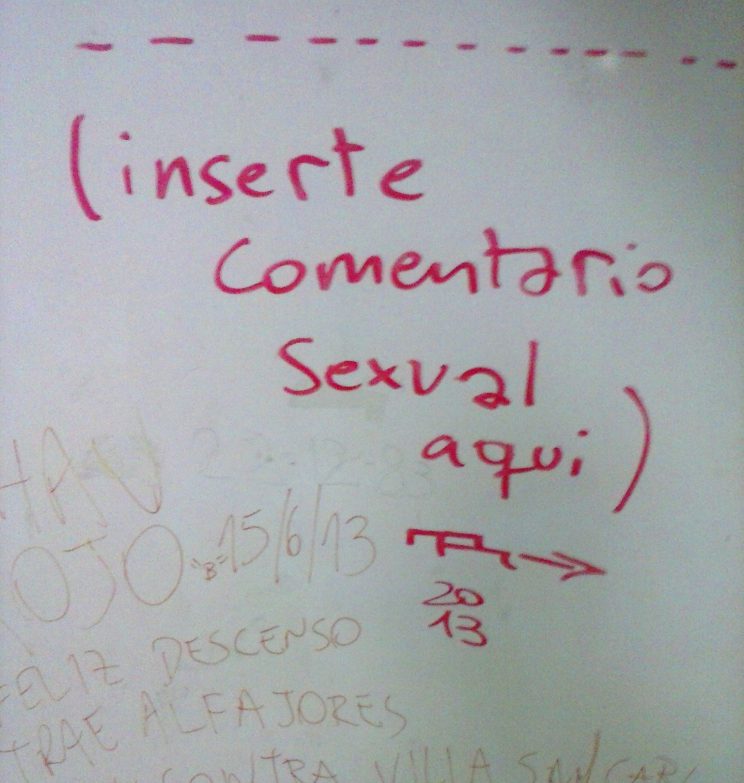 (inserte
comentario
sexual
aqui)
OJO "B" 15/6/13
20
13
FELIZ DESCENSO
TRAE ALFAJORES
CONTRA VILLA